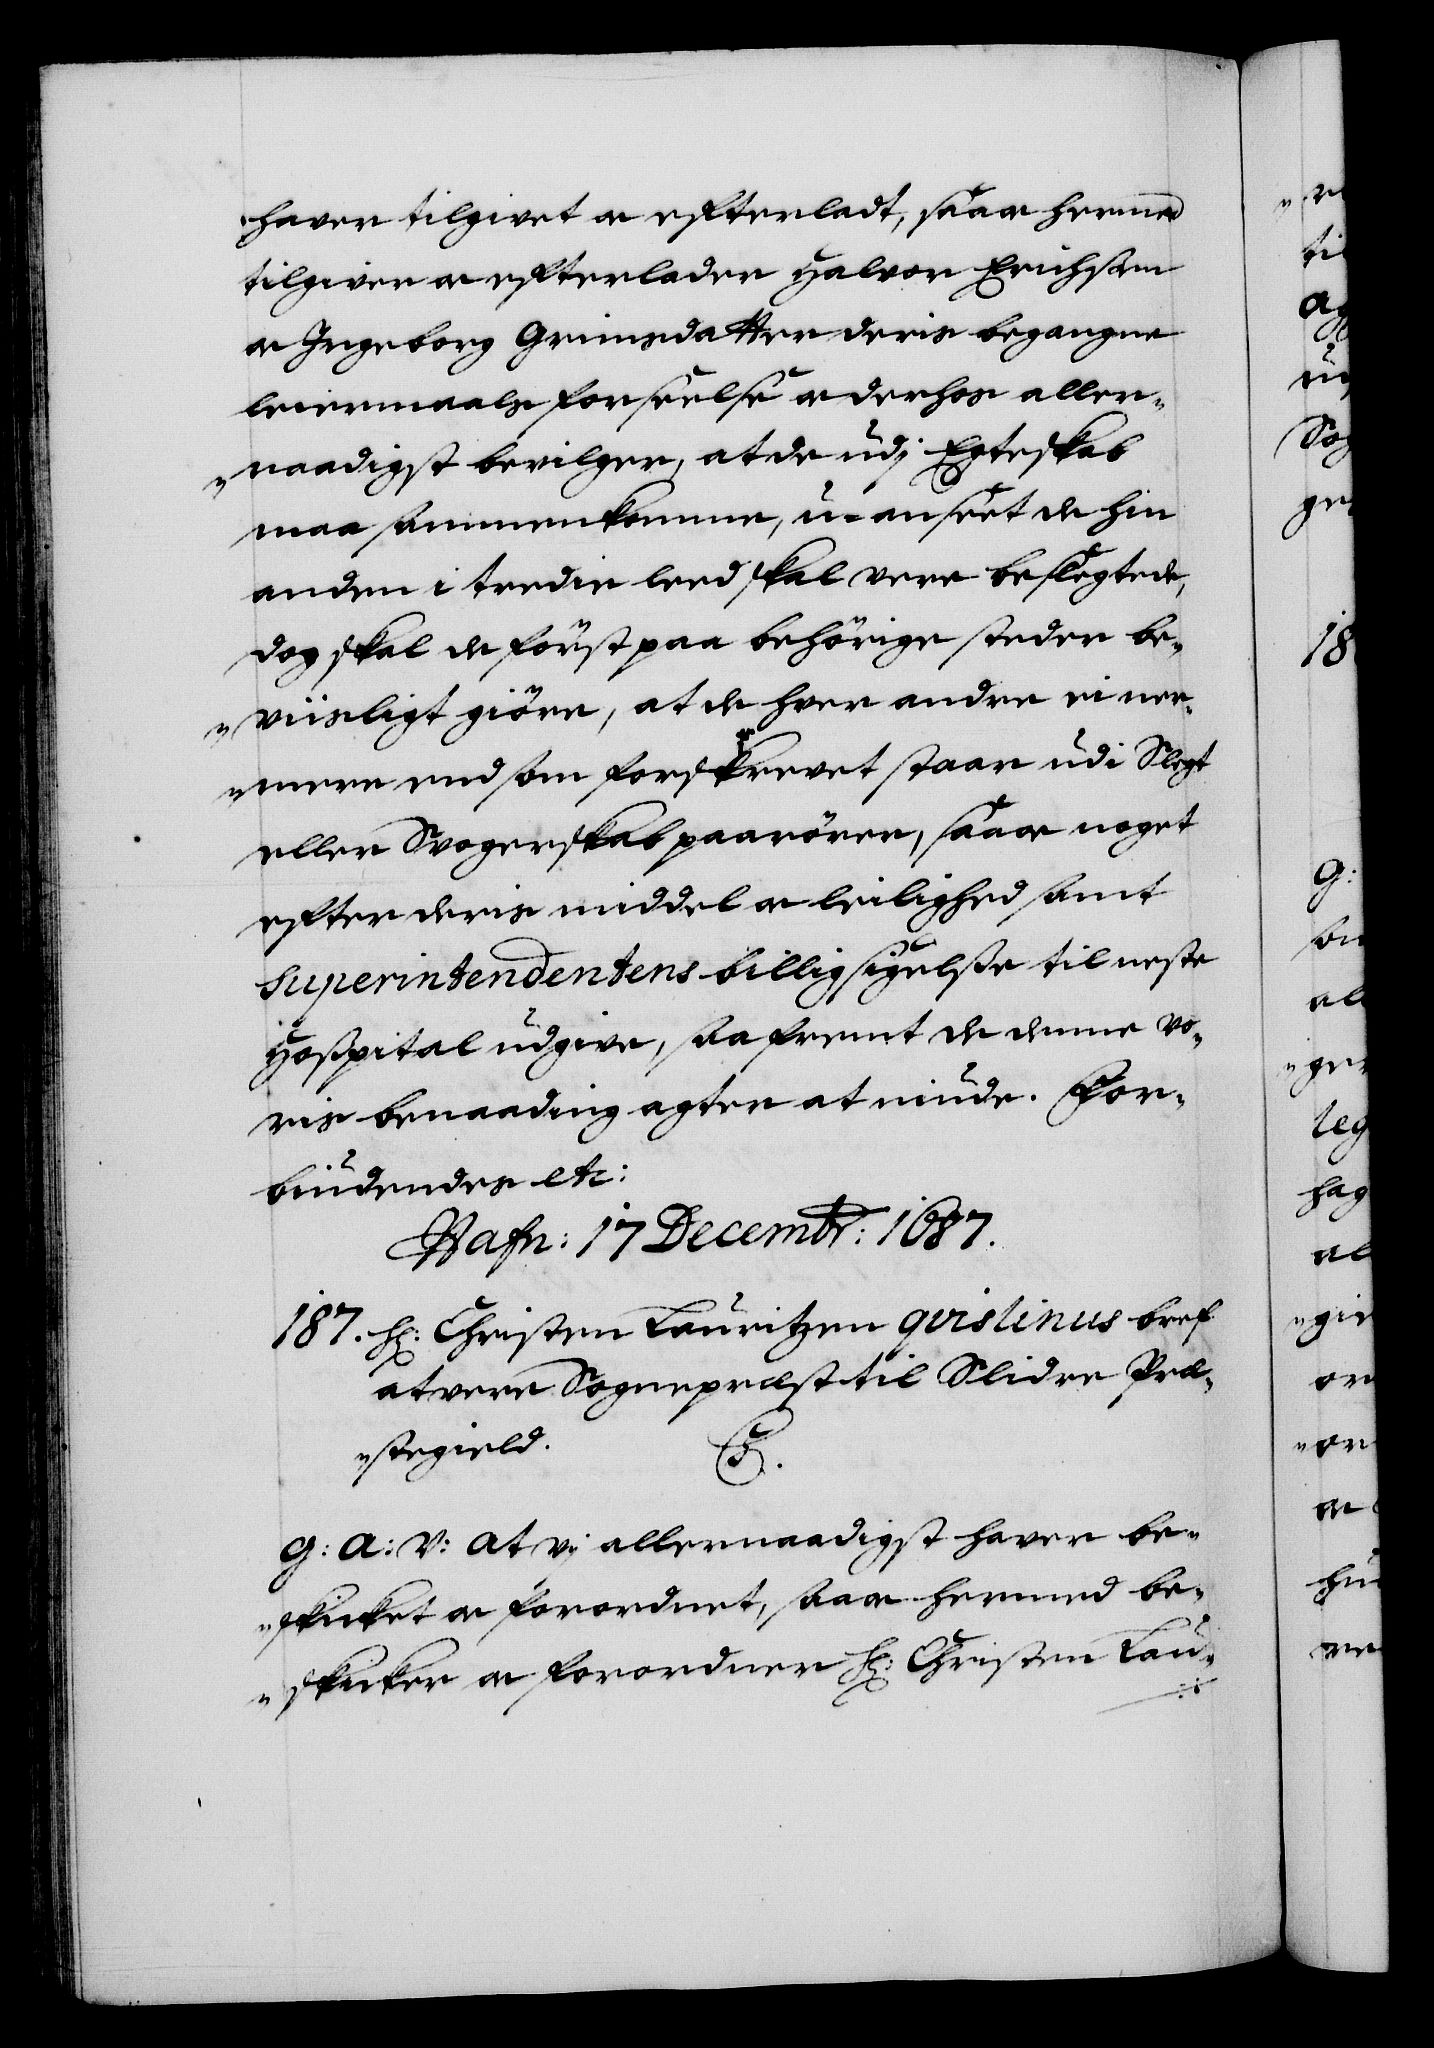 haver tilgivet oc efterladt, saa oc hermed
tilgiver oc efterlader Halvor Erichsøn
oc Ingeborg Grimsdatter deris begangne
leiermaals forseelse oc derhos aller-
naadigst bevilger, at de udj Egteskab
maa sammenkomme, u-anseet de hin
anden i tredie leed skal vere beslegtede,
dog skal de först paa behörige steder be-
viisligt giöre, at de hver andre ei ner-
mere end som forskrevet staar udi Slegt
eller Svogerskab paarörer, saa oc noget
efter deris middel oc leilighed samt
Superintendentens billigsigelsse til neste
Hosspital udgive, saafremt de denne vo-
ris benaading agter at niude. For-
biudendes etc:
Hafn: 17 Decembr: 1687.
187. Hr: Christen Lauritzen qvislinus bref
at vere Sogneprest til Slidre Præ-
stegield. C.
G: A: V: At vj allernaadigst haver be-
skicket oc forordnet, saa oc hermed be-
skicker oc forordner Hr: Christen Lau-